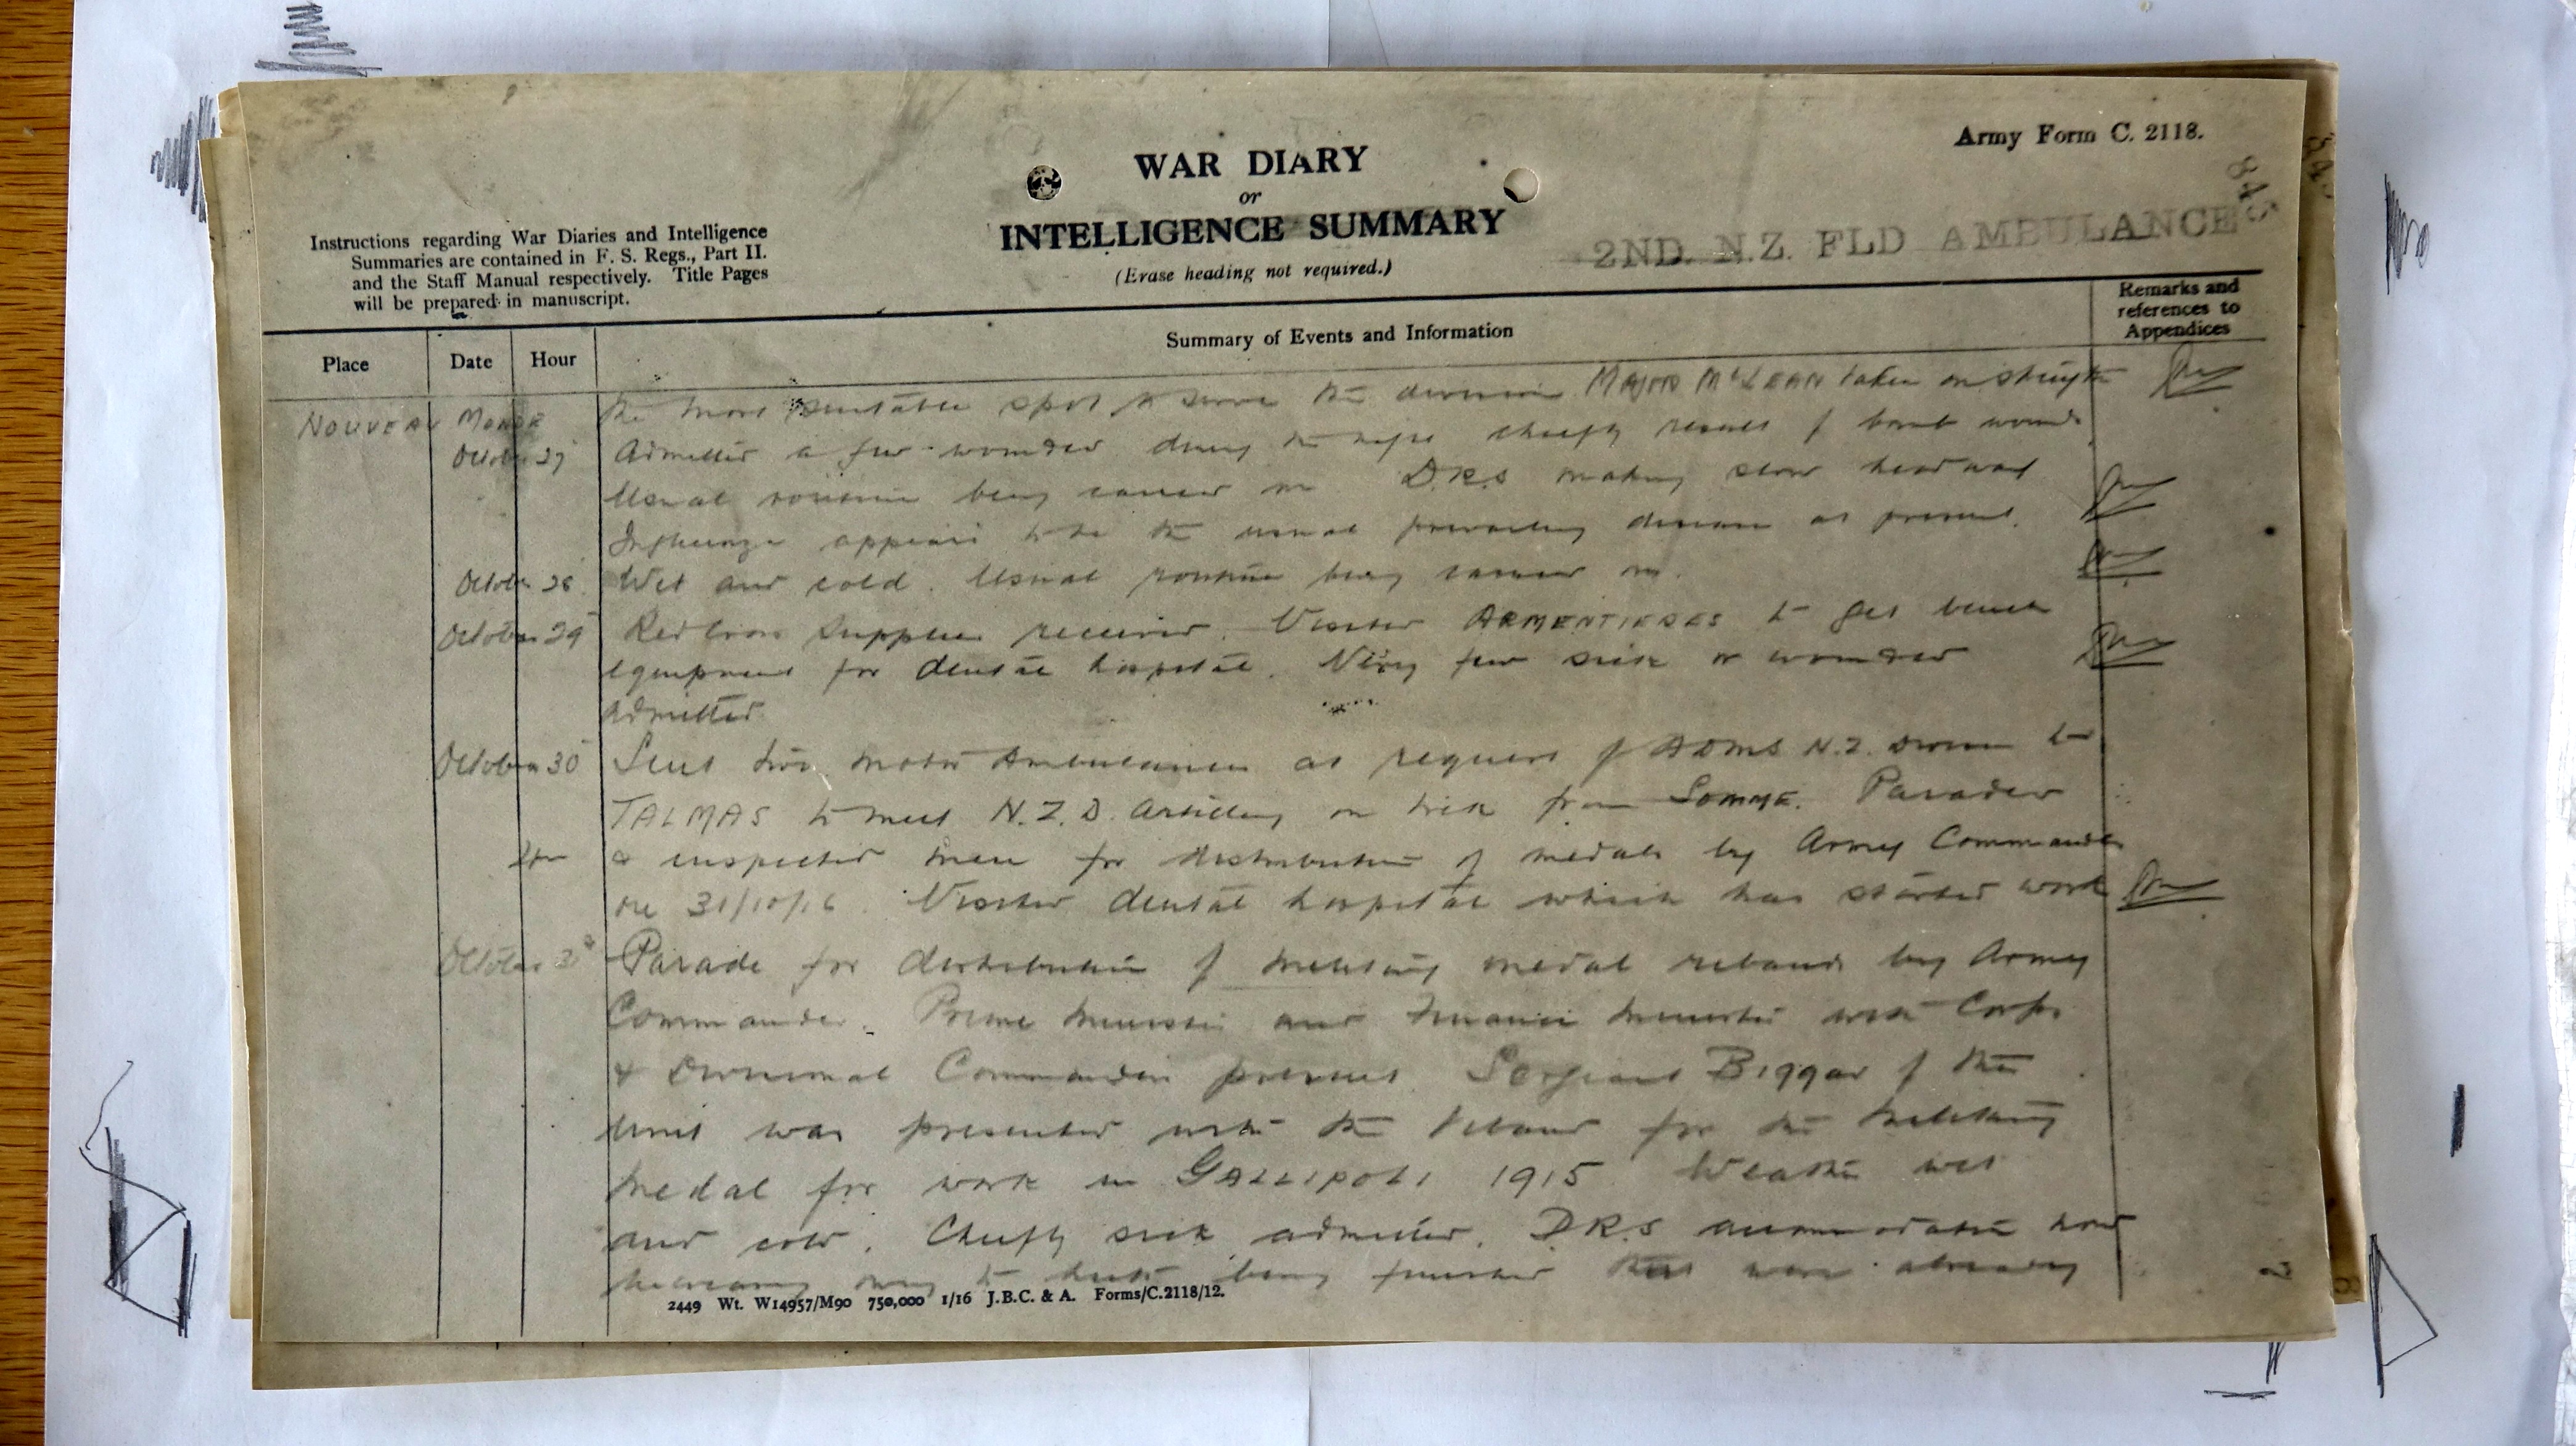 Army Form C. 2118.
WAR DIARY
or
INTELLIGENCE SUMMARY
(Erase heading not required.)
Instructions regarding War Diaries and Intelligence
Summaries are contained in F. S. Regs., Part II.
and the Staff Manual respectively. Title Pages
will be prepared in manuscript.
845
2ND. N.Z. FLD AMBULANCE
Place
Date
Hour
Summary of Events and Information
Remarks and
references to
Appendices
NOUVEAU MONDE
the most suitable spot to serve the division MAJOR McLEAN taken on strength
October 27 Admitted a few wounded during the night chiefly result of bomb wounds.
Usual routine being carried on D.R.S making slow headway
Influenza appears to be the usual prevailing disease at present.
October 28 Wet and cold. Usual routine being carried on.
October 29 Red Cross supplies received. Visited ARMENTIERES to get bench
equipment for dental hospital. Very few sick or wounded
admitted.
October 30 Sent two motor Ambulances at request of ADMS N.Z. Division to
TALMAS to meet N.Z.D. Artillery on trek from SOMME. Paraded
& inspected men for distribution of medals by Army Commander
on 31/10/16. Visited dental hospital which has started work
October Parade for distribution of military medal ribands by Army
Commander. Prime Minister and Finance Minister with Corps
& Divisional Commanders present. Sergeant Biggar of this
Unit was presented with the riband for the Military
Medal for work in GALLIPOLI 1915. Weather wet
and cold. Chiefly sick admitted. D.R.S accommodation now
increasing owing to huts being finished that were already
2449 Wt. W14957/M90 750,000 1/16 J.B.C. & A. Forms/C.2118/12.